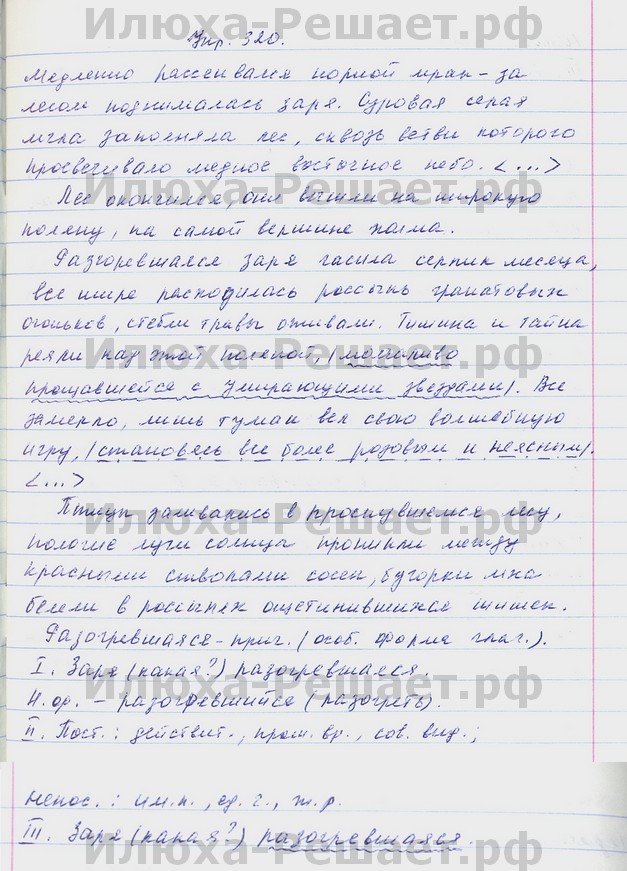 Илюха-Решает.рф
Упр. 320.
Медленно рассеивался ночной мрак – за
лесом поднималась заря. Суровая серая
мгла заполняла лес, сквозь ветви которого
просвечивало медное восточное небо. <...>
Илюха-Решает.рф
Лес окончился, они вышли на широкую
поляну, на самой вершине холма.
Разгоревшаяся заря гасила серпик месяца,
все шире расходилась россыпь гранатовых
огоньков, стебли травы оживали. Тишина и тайна
Илюха-Решает.рф
реяли над этой поляной, (молчаливо
прощавшейся с умирающими звездами). Все
замерло, лишь туман вел свою волшебную
игру, (становясь все более розовым и неясным).
<...>
Птицы заливались в проснувшемся лесу,
Илюха-Решает.рф
пологие лучи солнца проникли между
красными стволами сосен, бугорки мха
белели в россыпях ощетинившихся шишек.
Разогревшаяся – прич. (особ. форма глаг.).
I. Заря (какая?) разогревшаяся.
Илюха-Решает.рф
Н. ф. – разогревшийся (разогреть).
II. Пост.: действит., прош. вр., сов. вид.;
Непос.: им.п., ед. ч., ж.р.
III. Заря (какая?) разогревшаяся.
Илюха-Решает.рф